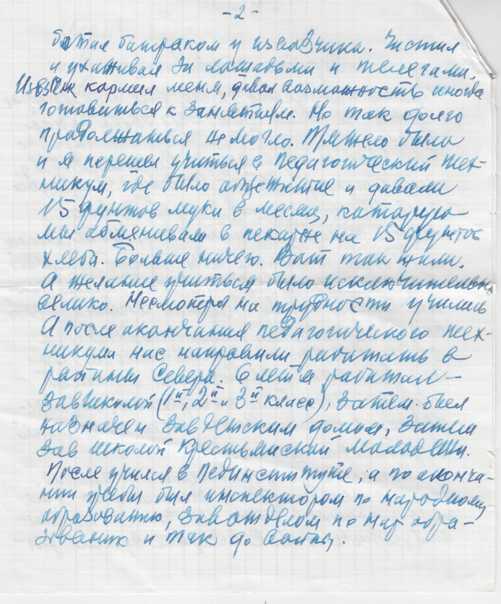 - 2 -
ботал батраком у извозчика. Чистил
и ухаживал за лошадьми и телегами,
Извозчик кормил меня, давал возможность иногда
готовиться к занятиям. Но так долго
продолжаться не могло. Тяжело было
и я перешел учиться в педагогический тех-
никум, где было общежитие и давали
15 фунтов муки в месяц, которую
мы обменивали в пекарне на 15 фунтов
хлеба. Больше ничего. Вот так жили.
А желание учиться было исключительно
велико. Несмотря на трудности учились
А после окончания педагогического тех-
никума нас направили работать в
районы Севера. 6 лет я работал
завшколой (1й, 2й и 3й класс), затем был
назначен зав детским домом, затем
зав школой Крестьянской молодежи.
После учился в Пединституте, а по оконча-
нии учебы был инспектором по народному
образованию, завотделом по нар обра-
зованию и так до войны.